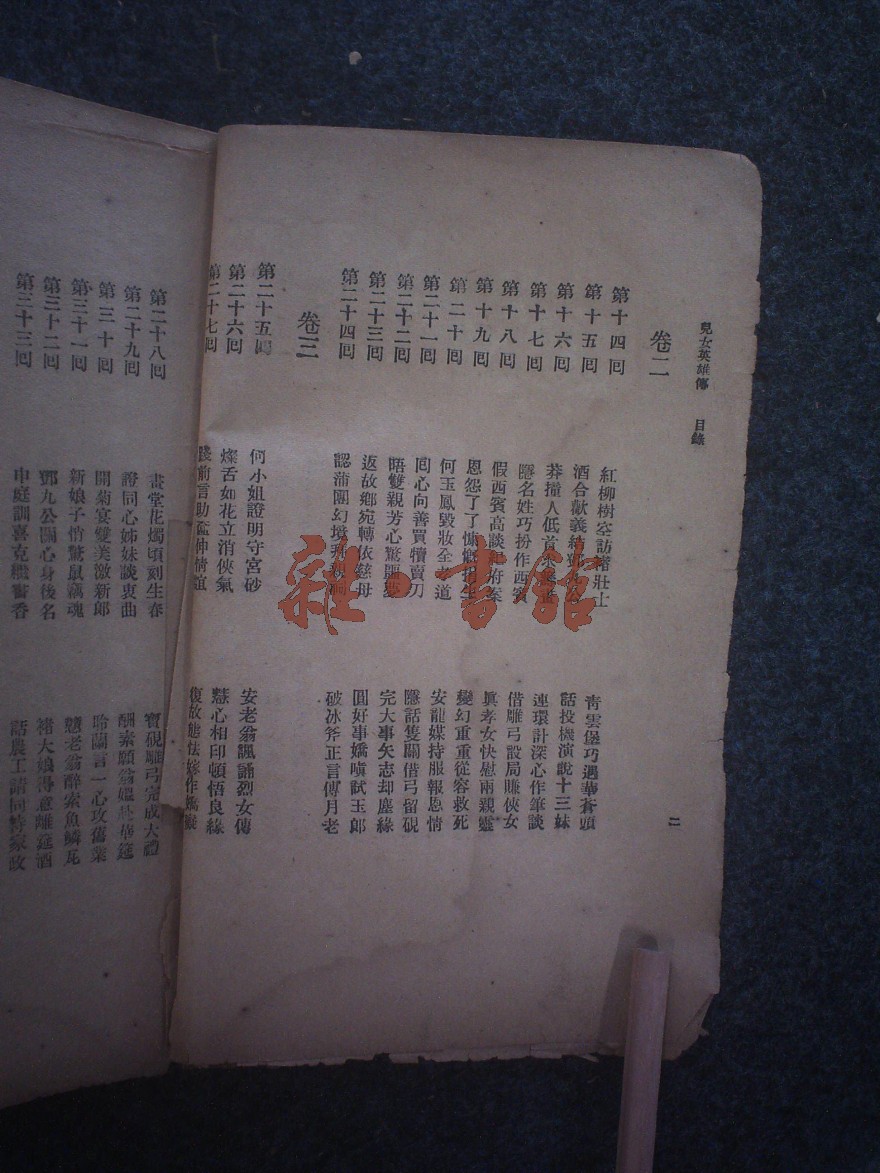 兒女英雄傳 目錄
二
卷二
第十四回 紅柳樹空訪著壯士 靑雲堡巧遇華蒼頭
第十五回 酒合歡義結鄧 話投機演說十三妹
第十六回 莽撞人低首 連環計深心作筆談
第十七回 隱名姓巧扮作西賓 借雕弓設局賺俠女
第十八回 假西賓高談紀府案 眞孝女快慰兩親靈
第十九回 恩怨了了慷慨捐生 變幻重重從容救死
第二十回 何玉鳳毀妝全孝道 安龍媒持服報恩情
第二十一回 回心向善買犢賣刀 隱話雙關借弓留硯
第二十二回 晤雙親芳心驚噩夢 完大事矢志却塵緣
第二十三回 返故鄉宛轉依慈母 圓好事嬌嗔試玉郎
第二十四回 認蒲團幻境 破冰斧正言傳月老
卷三
第二十五回 何小姐證明守宮砂 安老翁諷誦烈女傳
第二十六回 燦舌如花立消俠氣 慧心相印頓悟良緣
第二十七回 踐前言助奩伸情誼 復故態怯嫁作嬌癡
第二十八回 畫堂花燭頃刻生春 寶硯雕弓完成大禮
第二十九回 證同心姊妹談衷曲 酬素願翁媼赴華筵
第三十回 開菊宴雙美激新郎 聆蘭言一心攻舊業
第三十一回 新娘子悄驚鼠竊魂 戇老翁醉索魚鱗瓦
第三十二回 鄧九公關心身後名 褚大娘得意離筵酒
第三十三回 申庭訓喜克 話農工請同持家政
雜·書館